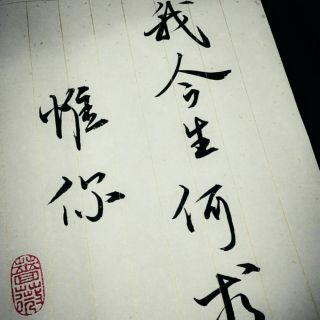 我今生何求
惟你